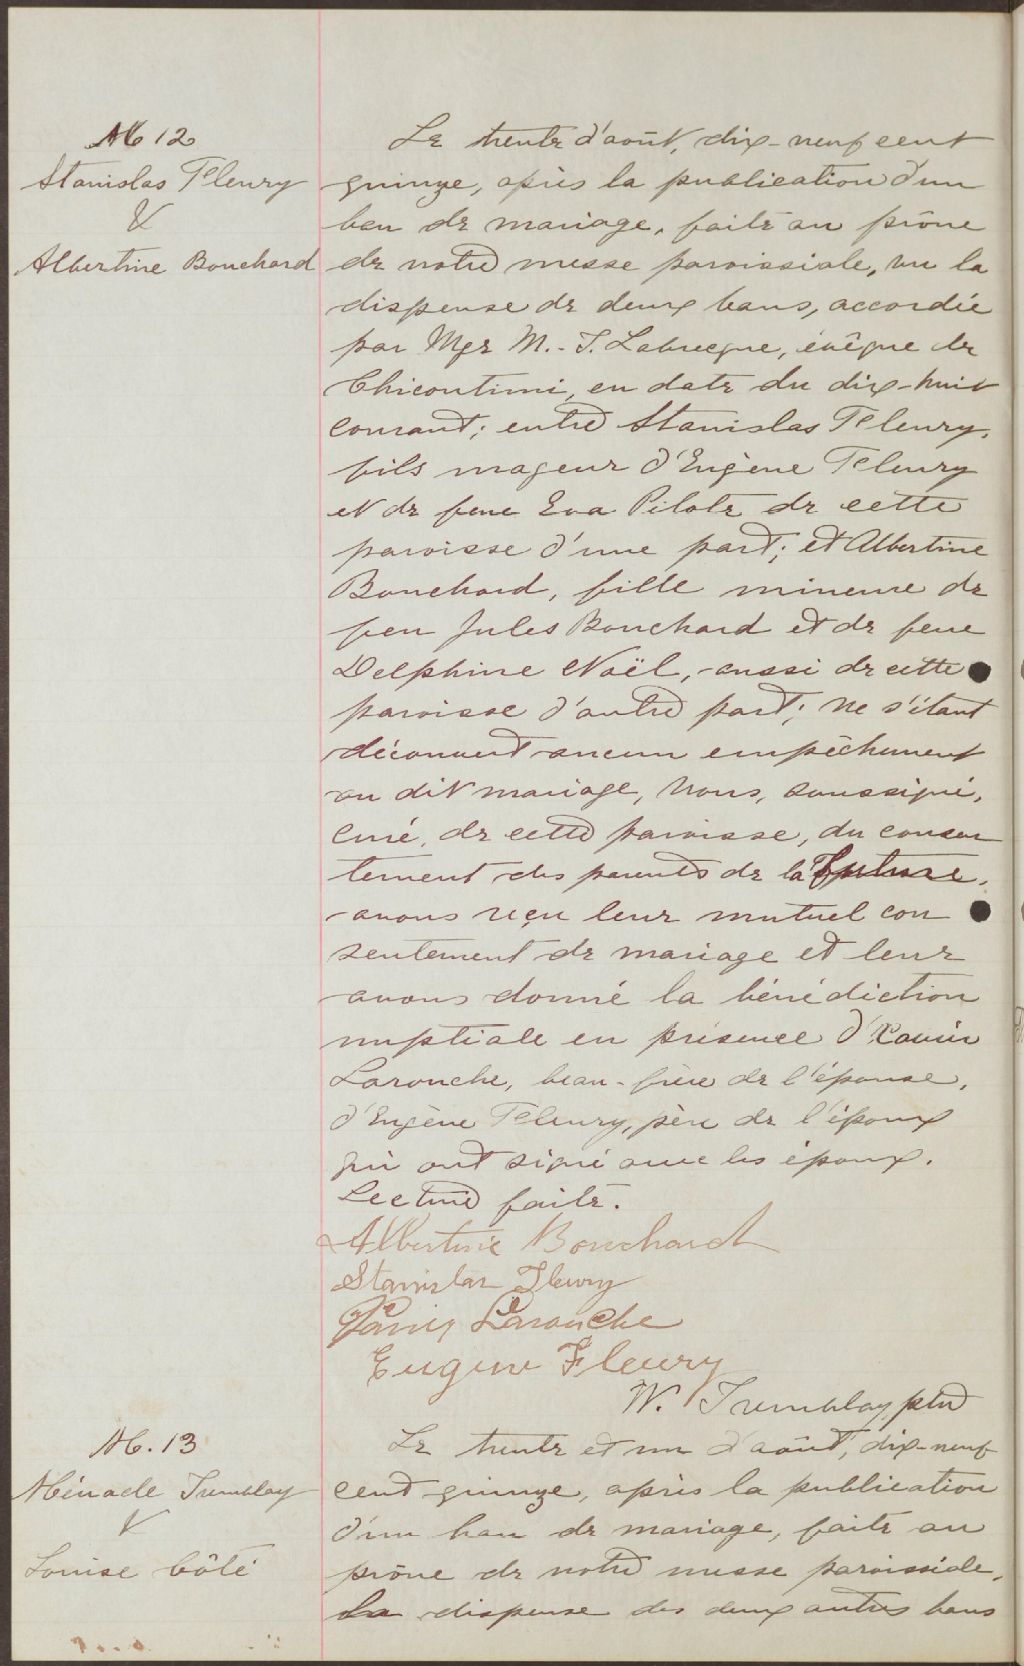 M 12
Stanislas Fleury
&
Albertine Bouchard
Le trente d'août, dix-neuf cent
quinze, après la publication d'un
ban de mariage, faite au prône
de notre messe paroissiale, vu la
dispense de deux bans, accordée
par Mgr M.-T. Labrecque, évêque de
Chicoutimi, en date du dix-huit
courant; entre Stanislas Fleury,
fils mageur d'Eugène Fleury
et de feue Eva Pilote de cette
paroisse d'une part; et Albertine
Bouchard, fille mineure de
feu Jules Bouchard et de feue
Delphine Noël, aussi de cette
paroisse d'autre part; ne s'étant
découvert aucun empêchement
au dit mariage, Nous, soussigné,
curé, de cette paroisse, du consen
tement des parents de la future,
avons reçu leur mutuel con
sentement de mariage et leur
avons donné la bénédiction
nuptiale en présence d'Xavier
Larouche, beau-frère de l'épouse,
d'Eugène Fleury, père de l'époux
qui ont signé avec les époux.
Lecture faite.
Albertine Bouchard
Stanislas Fleury
Larouche
Eugene Fleury
W. Tremblay, ptre
M. 13
Ménade Tremblay
&
Louise Côté
Le trente et un d'août, dix-neuf
cent quinze, après la publication
d'un ban de mariage, faite au
prône de notre messe paroissiale,
la dispense des deux autres bans